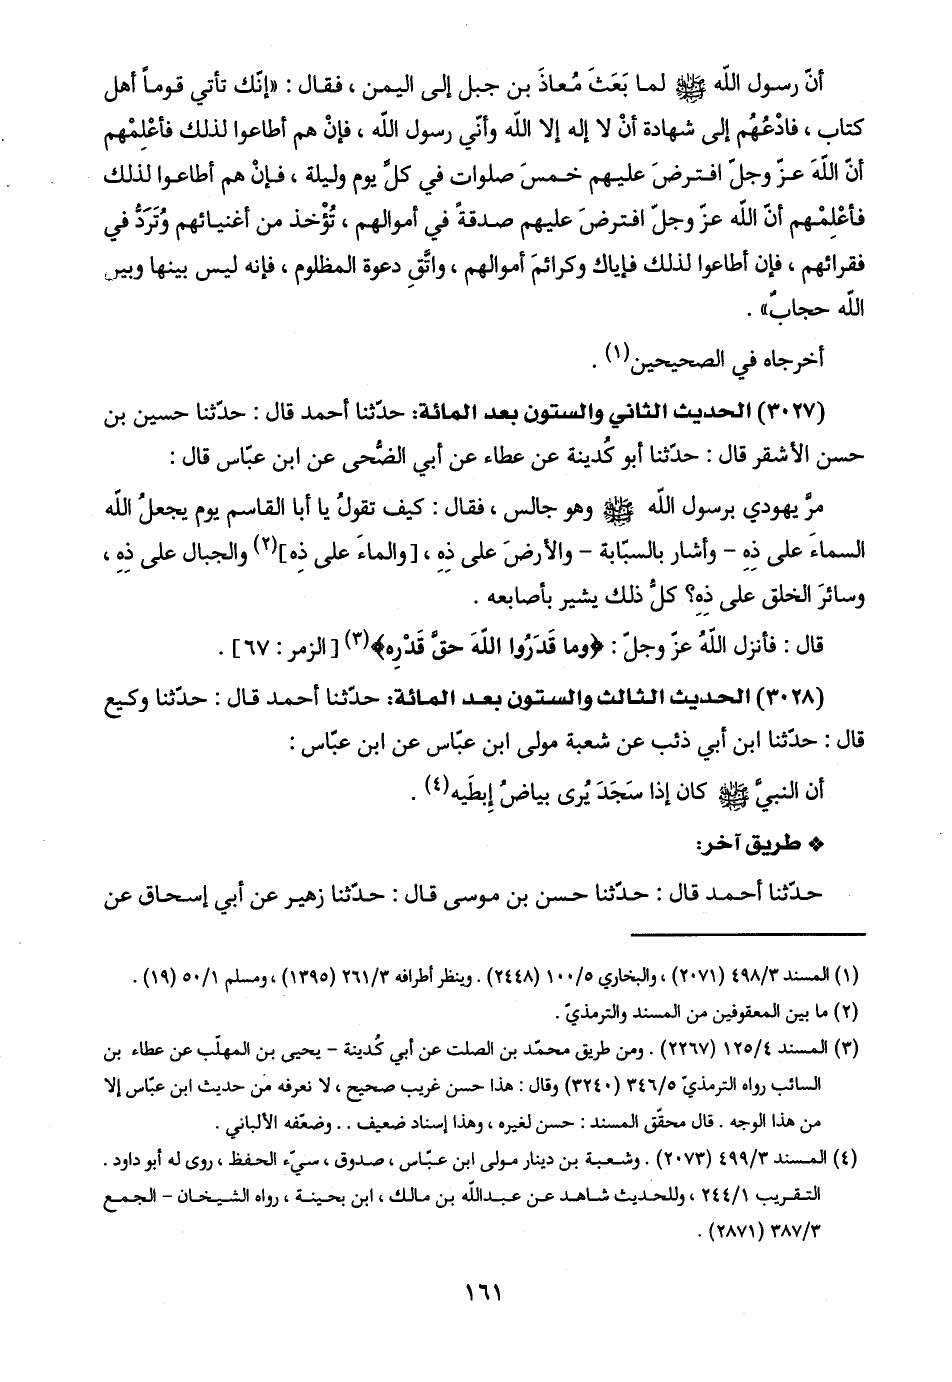 أنّ رسول اللّه ﷺ لما بَعَثَ مُعاذَ بن جبل إلى اليمن ، فقال : «إنّك تأتي قوماً أهل
كتاب ، فادْعُهُم إلى شهادة أنْ لا إله إلا اللّه وأنّي رسول اللّه ، فإنْ هم أطاعوا لذلك فأعْلِمْهم
أنّ اللّهَ عـزّ وجلّ افـترضَ عليـهم خـمسَ صلوات في كلِّ يوم وليلة ، فـإنْ هم أطاعـوا لذلك
فأعْلِمْـهم أنّ اللّه عزّ وجلّ افترضَ عليهم صدقةً في أموالهم ، تُؤْخذ من أغنيائهم وُتَرَدُّ في
فقرائهم ، فإن أطاعوا لذلك فإياك وكرائمَ أموالهم ، واتَّقِ دعوة المظلوم ، فإنه ليس بينها وبين
اللّه حجابٌ» .
أخرجاه في الصحيحين(١) .
(٣٠٢٧) الحديث الثاني والستون بعد المائة: حدّثنا أحمد قال : حدّثنا حسين بن
حسن الأشقر قال : حدّثنا أبو كُدينة عن عطاء عن أبي الضُّحى عن ابن عبّاس قال :
مرَّ يهودي برسول اللّه ﷺ وهو جالس ، فقال : كيف تقولُ يا أبا القاسم يوم يجعلُ اللّه
السماءَ على ذِهِ – وأشار بالسبّابة – والأرضَ على ذِهِ ، [والماءَ على ذِه](٢) والجبال على ذِهِ ،
وسائرَ الخلق على ذِهِ؟ كلُّ ذلك يشير بأصابعه .
قال : فأنزل اللّهُ عزّ وجلّ : ﴿وما قَدَرُوا اللّهَ حقَّ قَدْرِه﴾(٣) [الزمر : ٦٧] .
(٣٠٢٨) الحديث الثالث والستون بعد المائة: حدّثنا أحمد قال : حدّثنا وكيع
قال : حدّثنا ابن أبي ذئب عن شعبة مولى ابن عبّاس عن ابن عبّاس :
أن النبيَّ ﷺ كان إذا سَجَدَ يُرى بياضُ إبطَيه(٤) .
❖ طريق آخر:
حدّثنا أحمد قال : حدّثنا حسن بن موسى قال : حدّثنا زهير عن أبي إسحاق عن
(١) المسند ٤٩٨/٣ (٢٠٧١) ، والبخاري ١٠٠/٥ (٢٤٤٨) . وينظر أطرافه ٢٦١/٣ (١٣٩٥) ، ومسلم ٥٠/١ (١٩) .
(٢) ما بين المعقوفين من المسند والترمذيّ .
(٣) المسند ١٢٥/٤ (٢٢٦٧) . ومن طريق محمّد بن الصلت عن أبي كُدينة – يحيى بن المهلّب عن عطاء بن
السائب رواه الترمذيّ ٣٤٦/٥ (٣٢٤٠) وقال : هذا حسن غريب صحيح ، لا نعرفه من حديث ابن عبّاس إلا
من هذا الوجه . قال محقّق المسند : حسن لغيره ، وهذا إسناد ضعيف . . وضعّفه الألباني .
(٤) المسند ٤٩٩/٣ (٢٠٧٣) . وشعـبة بن دينار مولى ابن عبّاس ، صدوق ، سيّء الحفظ ، روى له أبو داود .
التقريب ٢٤٤/١ ، وللحديث شاهد عن عبداللّه بن مالك ، ابن بحينة ، رواه الشيخان – الجمع
٣٨٧/٣ (٢٨٧١) .
١٦١